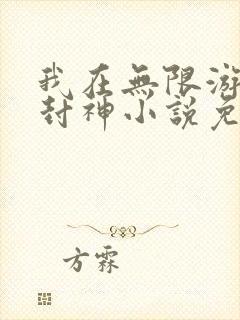 我在無限游
封神小說免
方霖